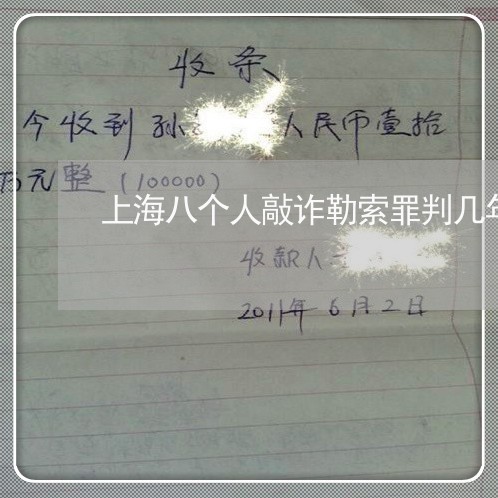 收条
今收到孙 人民币壹拾
万元整（100000）
上海八个人敲诈勒索罪判几年
收款人
2011年6月2日